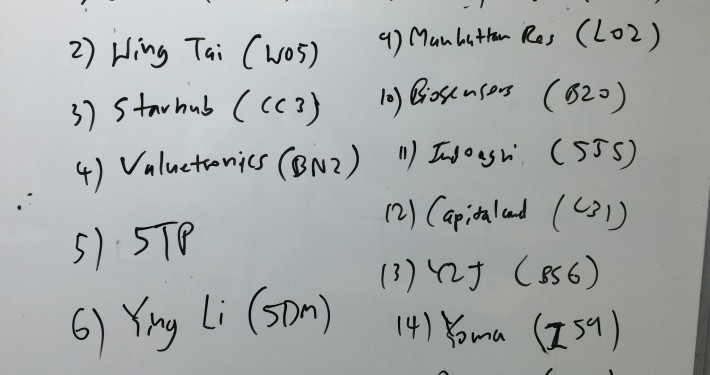 2) Wing Tai (W05)
3) Starhub (CC3)
4) Valuetronics (BN2)
5) 5TP
6) Ying Li (5DM)
9) Manhattan Res (L02)
10) Biosensors (B20)
11) Indoagri (5JS)
12) Capitaland (C31)
13) YZJ (BS6)
14) Yoma (Z59)